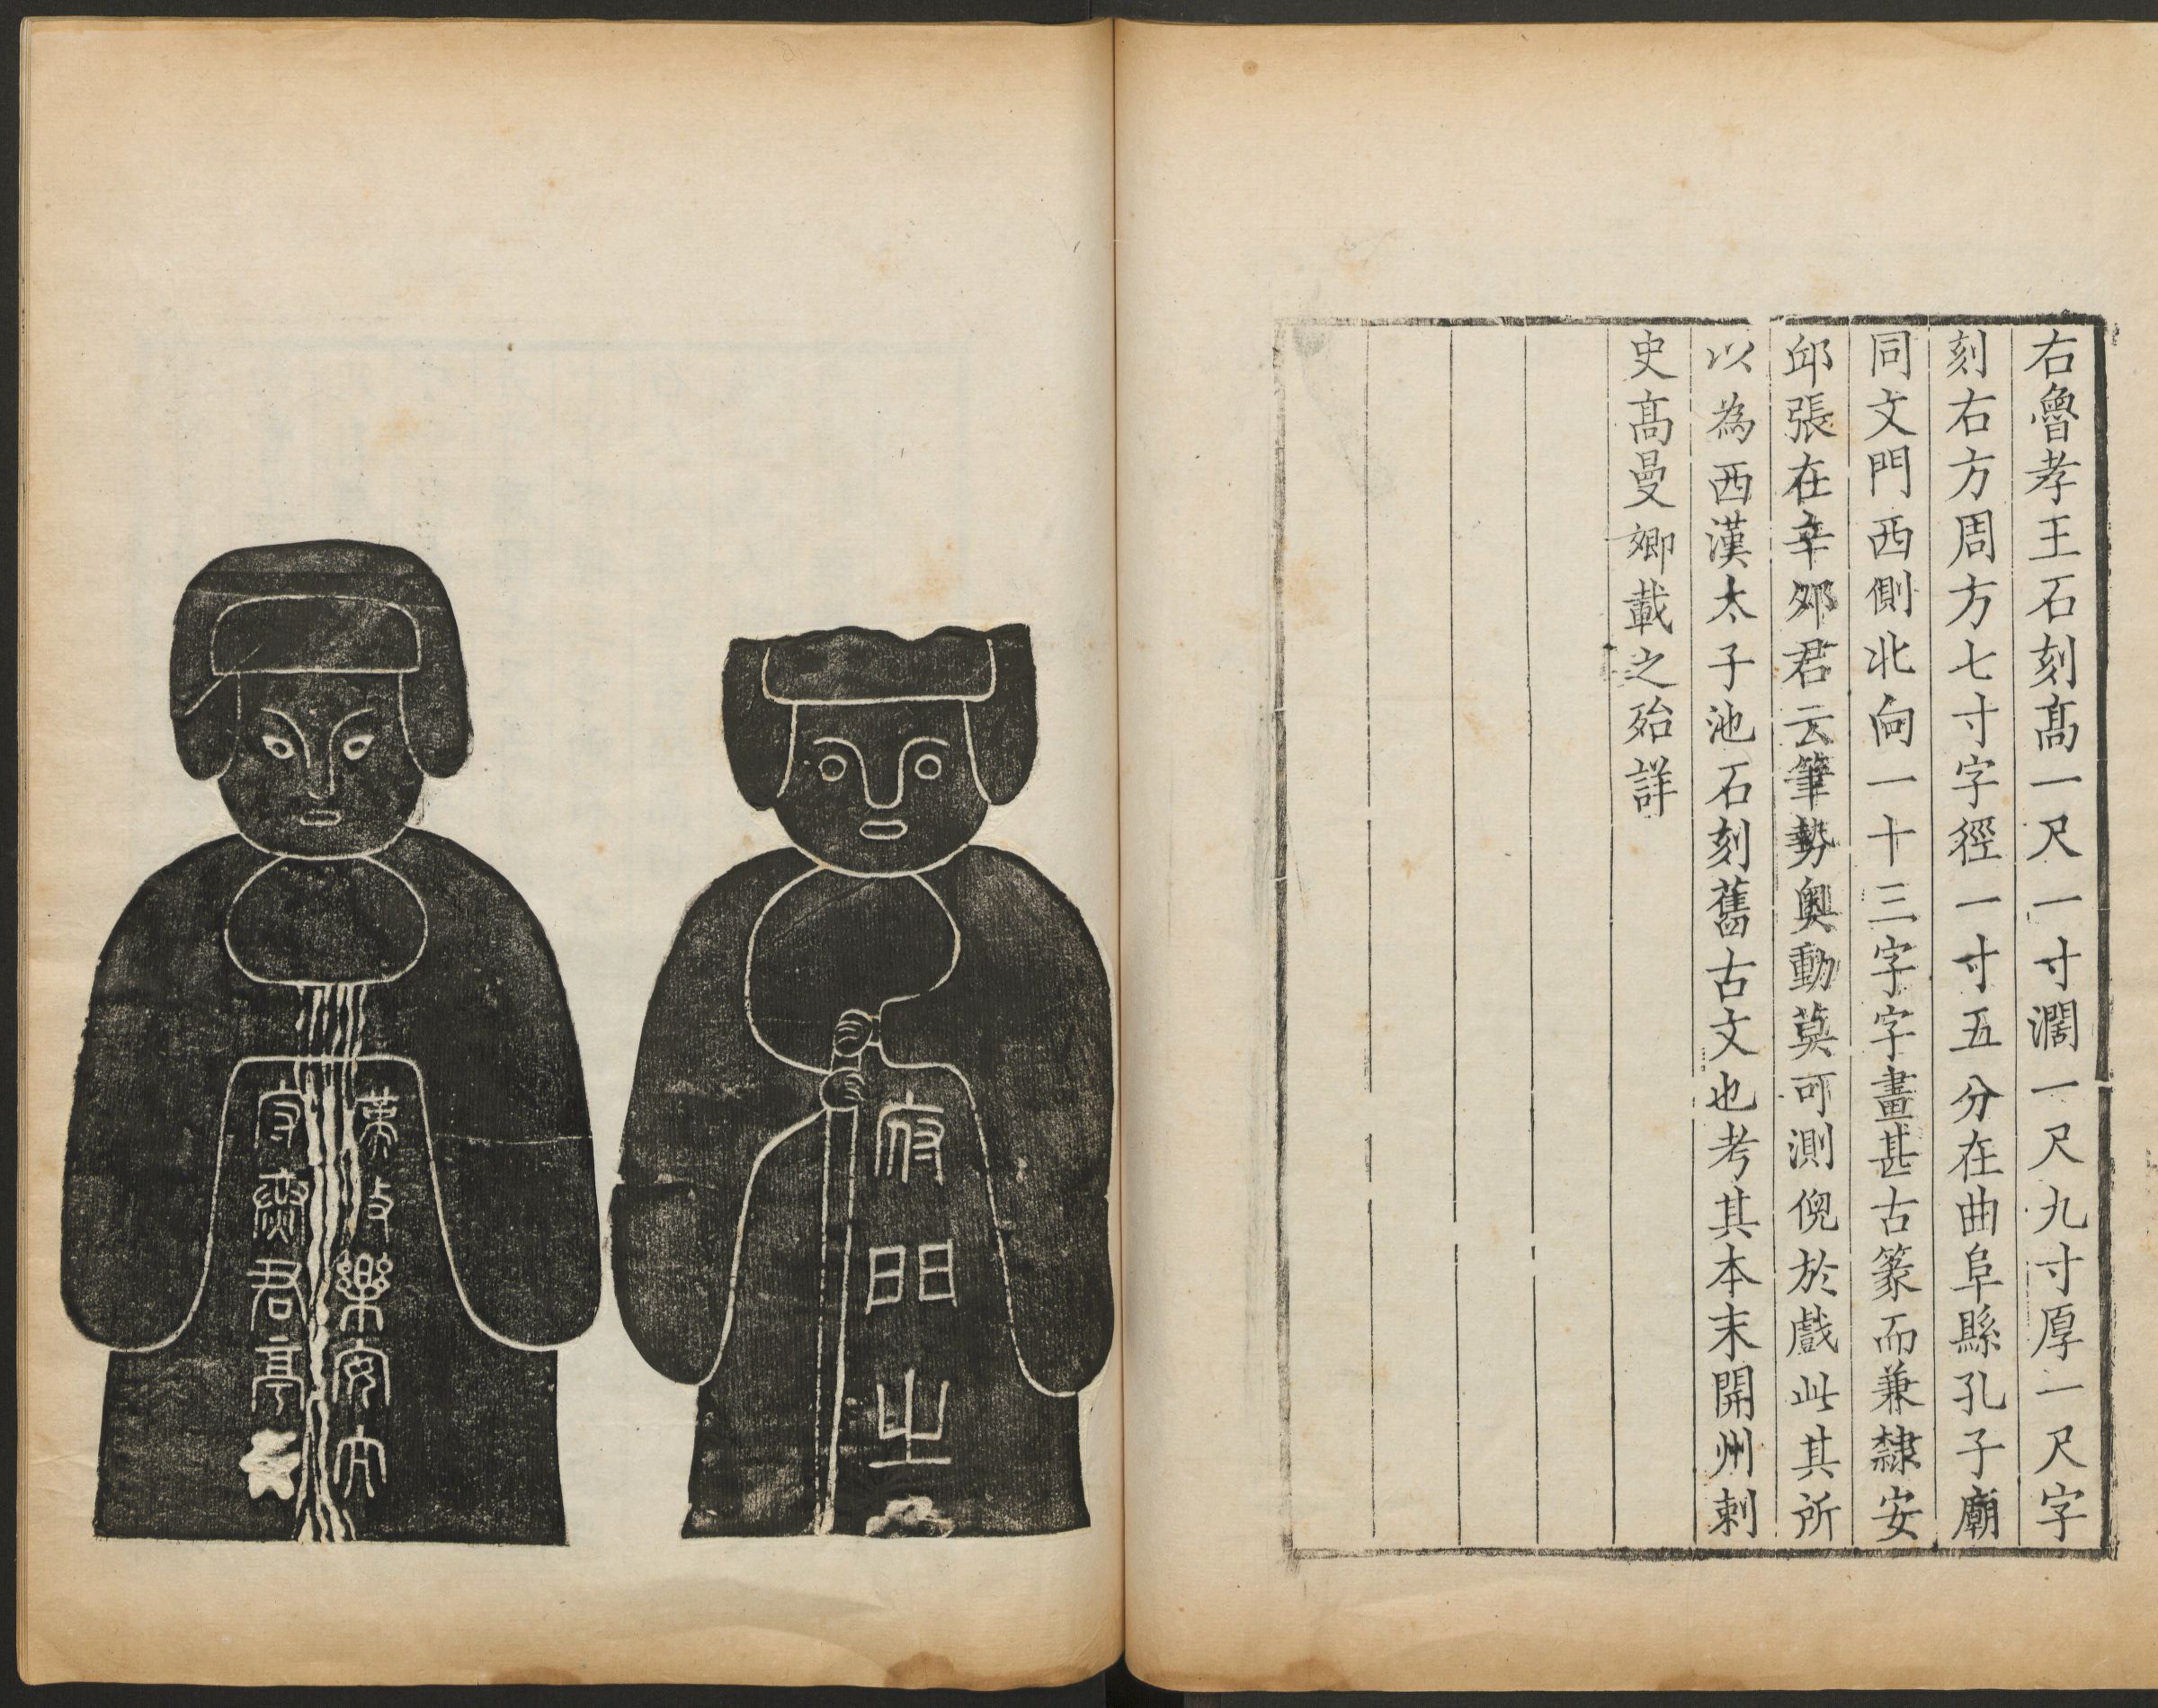 右魯孝王石刻髙一尺一寸濶一尺九寸厚一尺字
刻右方周方七寸字徑一寸五分在曲阜縣孔子廟
同文門西側北向一十三字字畫甚古篆而兼隸安
邱張在辛夘君云筆勢奧動莫可測倪於戲此其所
以為西漢太子池石刻舊古文也考其本末開州刺
史髙曼卿載之殆詳
府門之
漢故樂安太
守麃君亭